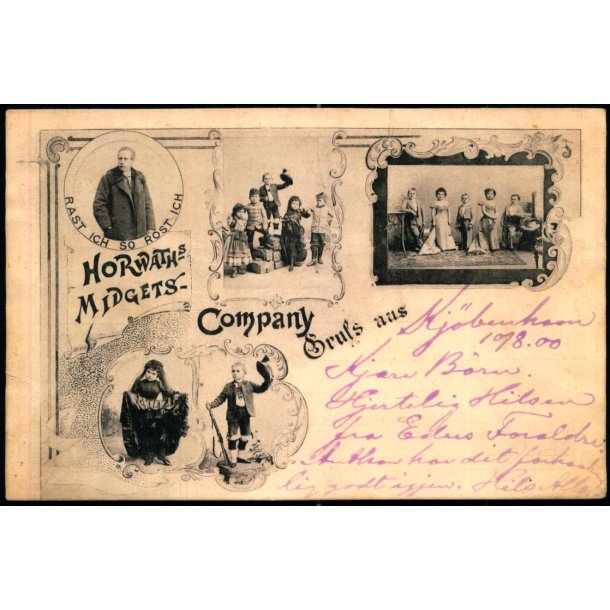 RAST ICH SO ROST ICH
HORWATH'S
MIDGETS-
Company
Gruſs aus
Kjöbenhavn
10/8.00
Kjære Börn.
Hjertelig Hilsen
fra Eders Foraldre.
har det
godt igjen. Hils Alle